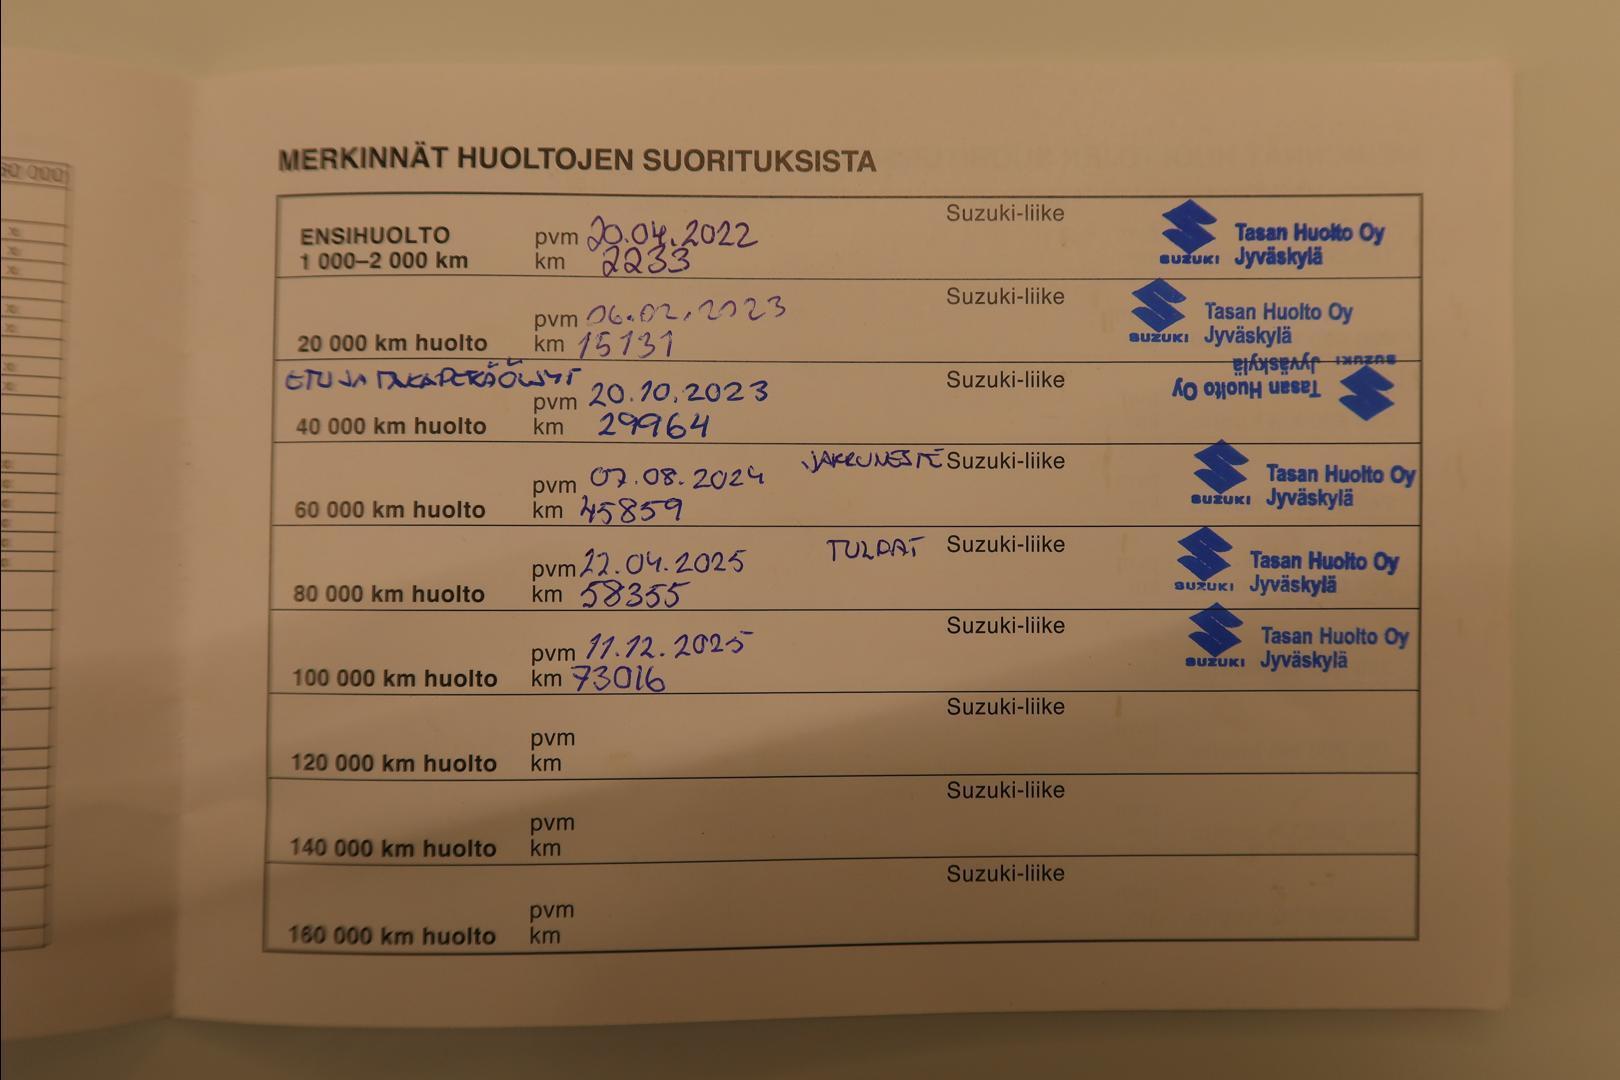 60 000
MERKINNÄT HUOLTOJEN SUORITUKSISTA
Suzuki-liike
ENSIHUOLTO pvm 20.04.2022 Tasan Huolto Oy
1 000–2 000 km km 2233 SUZUKI Jyväskylä
Suzuki-liike
pvm 06.02.2023 Tasan Huolto Oy
20 000 km huolto km 15131 SUZUKI Jyväskylä
ETU JA TAKAPERÄÖLJYT Suzuki-liike SUZUKI Jyväskylä
pvm 20.10.2023 Tasan Huolto Oy
40 000 km huolto km 29964
JARRUNESTE Suzuki-liike
pvm 07.08.2024 Tasan Huolto Oy
60 000 km huolto km 45859 SUZUKI Jyväskylä
TULPAT Suzuki-liike
pvm 22.04.2025 Tasan Huolto Oy
80 000 km huolto km 58355 SUZUKI Jyväskylä
Suzuki-liike
pvm 11.12.2025 Tasan Huolto Oy
100 000 km huolto km 73016 SUZUKI Jyväskylä
Suzuki-liike
pvm
120 000 km huolto km
Suzuki-liike
pvm
140 000 km huolto km
Suzuki-liike
pvm
160 000 km huolto km